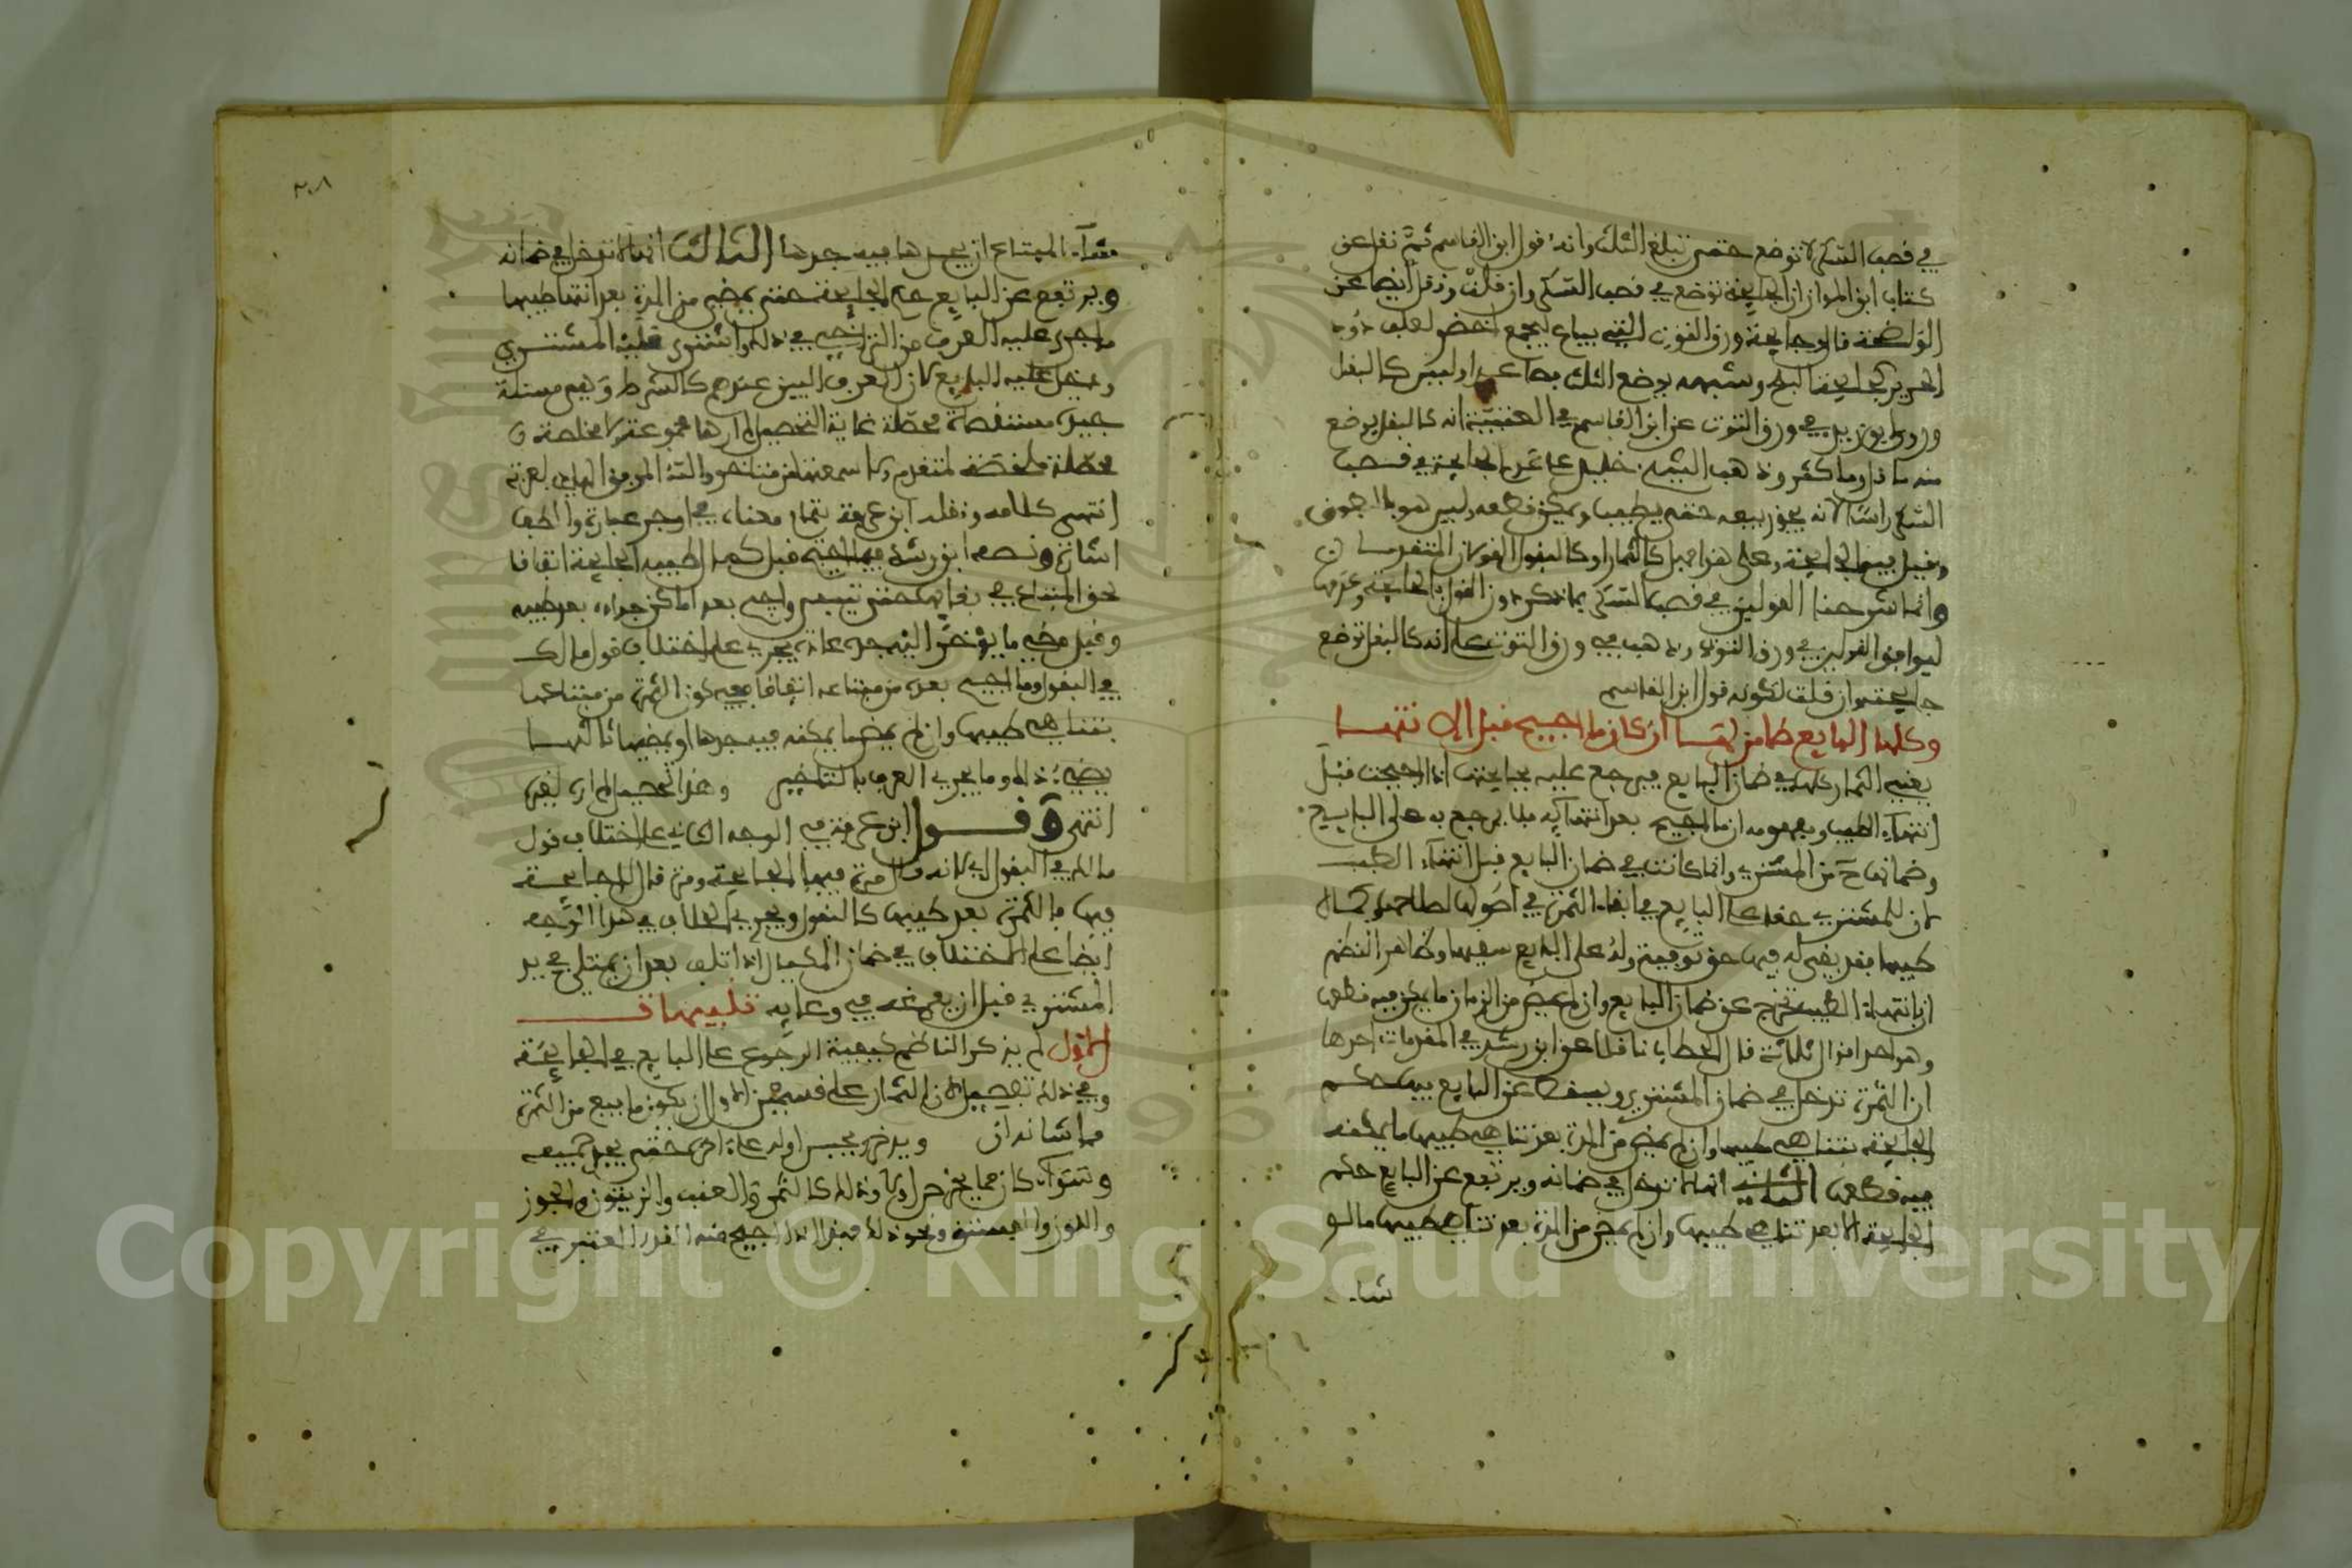 في قصب السكر لا توضع حتى تبلغ الثلث وانه قول ابن القاسم ثم نقل عن
كتاب ابن المواز ان الجايحة توضع في قصب السكر وان قلت ونقل ايضا عن
الواضحة قال وجايحة ورق التوت الذي يباع ليجمع اخضر لعلف دود
الحرير كجايحة وشبهه يوضع الثلث فصاعدا وليس كالبقل
وروى ابو زيد في ورق التوت عن ابن القاسم في العتبية انه كالبقل يوضع
منه ما قل وما كثر وذهب الشيخ خليل على عدم الجايحة في قصب
السكر لانه يجوز بيعه حتى يطيب ويمكن قطعه وليس هو
وقيل فيه الجايحة وعلى هذا فهل كالثمار او كالبقول القولان المتقدمان
وانما شرحنا القولين في قصب السكر بما ذكر دون القول بالجايحة وعدمها
ليوافق القولين في ورق التوت وذهب في ورق التوت على انه كالبقل توضع
جايحته وان قلت لكونه قول ابن القاسم
وكلها البايع ضامن لها ان كان ما اجيح قبل الانتها
يعني الثمار كلها في ضمان البايع فيرجع عليه بجايحتها اذا اجيحت قبل
انتهاء الطيب ومفهومه ان ما اجيح بعد انتهائه فلا يرجع به على البايع
وضمانها ح من المشتري وانما كانت في ضمان البايع قبل انتهاء الطيب
لان للمشتري حقا على البايع في ابقاء الثمرة في اصولها لصلاحها وكمال
طيبها فقد بقي له فيها حق توفية ولذا على البايع سقيها وظاهر النظم
ان بانتهاء الطيب تخرج عن ضمان البايع وان لم يمض من الزمان ما يمكن فيه قطعها
وهو احد اقوال ثلاثة قال الحطاب ناقلا عن ابن رشد في المقدمات احدها
ان الثمرة تدخل في ضمان المشتري ويسقط عن البايع فيها حكم
الجايحة بتناهي طيبها وان لم يمض من المدة بعد تناهي طيبها ما يمكنه
فيه قطعها الثاني انها لا تدخل في ضمانه ويرتفع عن البايع حكم
الجايحة الا بعد تناهي طيبها وان يمضي من المدة بعد تناهي طيبها ما لو
شاء
٢٠٨
شاء المبتاع ان يجدها فيه جدها الثالث انها لا تدخل في ضمانه
ويرتفع عن البايع حكم الجايحة حتى يمضي من المدة بعد انتها طيبها
ما جرى عليه العرف من التراخي في ذلك واشترى عليه المشتري
ودخل عليه البايع لان العرف البين عندهم كالشرط وهي مسئلة
جيدة مستقصاة محصلة غاية التحصيل لم ارها مجموعة ملخصة
محصلة لمتقدم ولا سمعتها من متاخر والله الموفق الهادي بعزته
انتهى كلامه ونقله ابن عرفة بتمام معناه في اوجز عبارة والطف
اشارة ونصه ابن رشد فيها اجيح قبل كمال طيبه الجايحة اتفاقا
لحق المبتاع في بقايها حتى تيبس واجيح بعد امكان جداده بعد طيبه
وقبل مضي ما يؤخر اليه جده عادة يجري على اختلاف قول مالك
في البقول وما اجيح بعده من مبتاعه اتفاقا ففي كون الثمرة من مبتاعها
بتناهي طيبها وان لم يمض ما يمكنه فيه جدها او بمضيه ثالثها
بمضي ذلك وما يجري العرف بالتاخير وهذا التحصيل لم اره لغيره
انتهى وقول ابن عرفة في الوجه الثاني على اختلاف قول
مالك في البقول اي لانه قال مرة فيها الجايحة ومرة قال لا جايحة
فيها فالثمرة بعد طيبها كالبقول ويجري الخلاف في هذا الوجه
ايضا على الاختلاف في ضمان المكيال اذا تلف بعد ان يمتلي في يد
المشتري قبل ان يفرغه في وعايه تنبيهات
الاول لم يذكر الناظم كيفية الرجوع على البايع في الجايحة
وفي ذلك تفصيل لان الثمار على قسمين الاول ان يكون ما بيع من الثمرة
مما شانه ان ويدخر يحبس اوله على اخره حتى يجد جميعه
وسواء كان مما يخرص ام لا وذلك كالثمرة والعنب والزيتون والجوز
واللوز والفستق ونحو ذلك فهذا اذا اجيح منه القدر المعتبر في